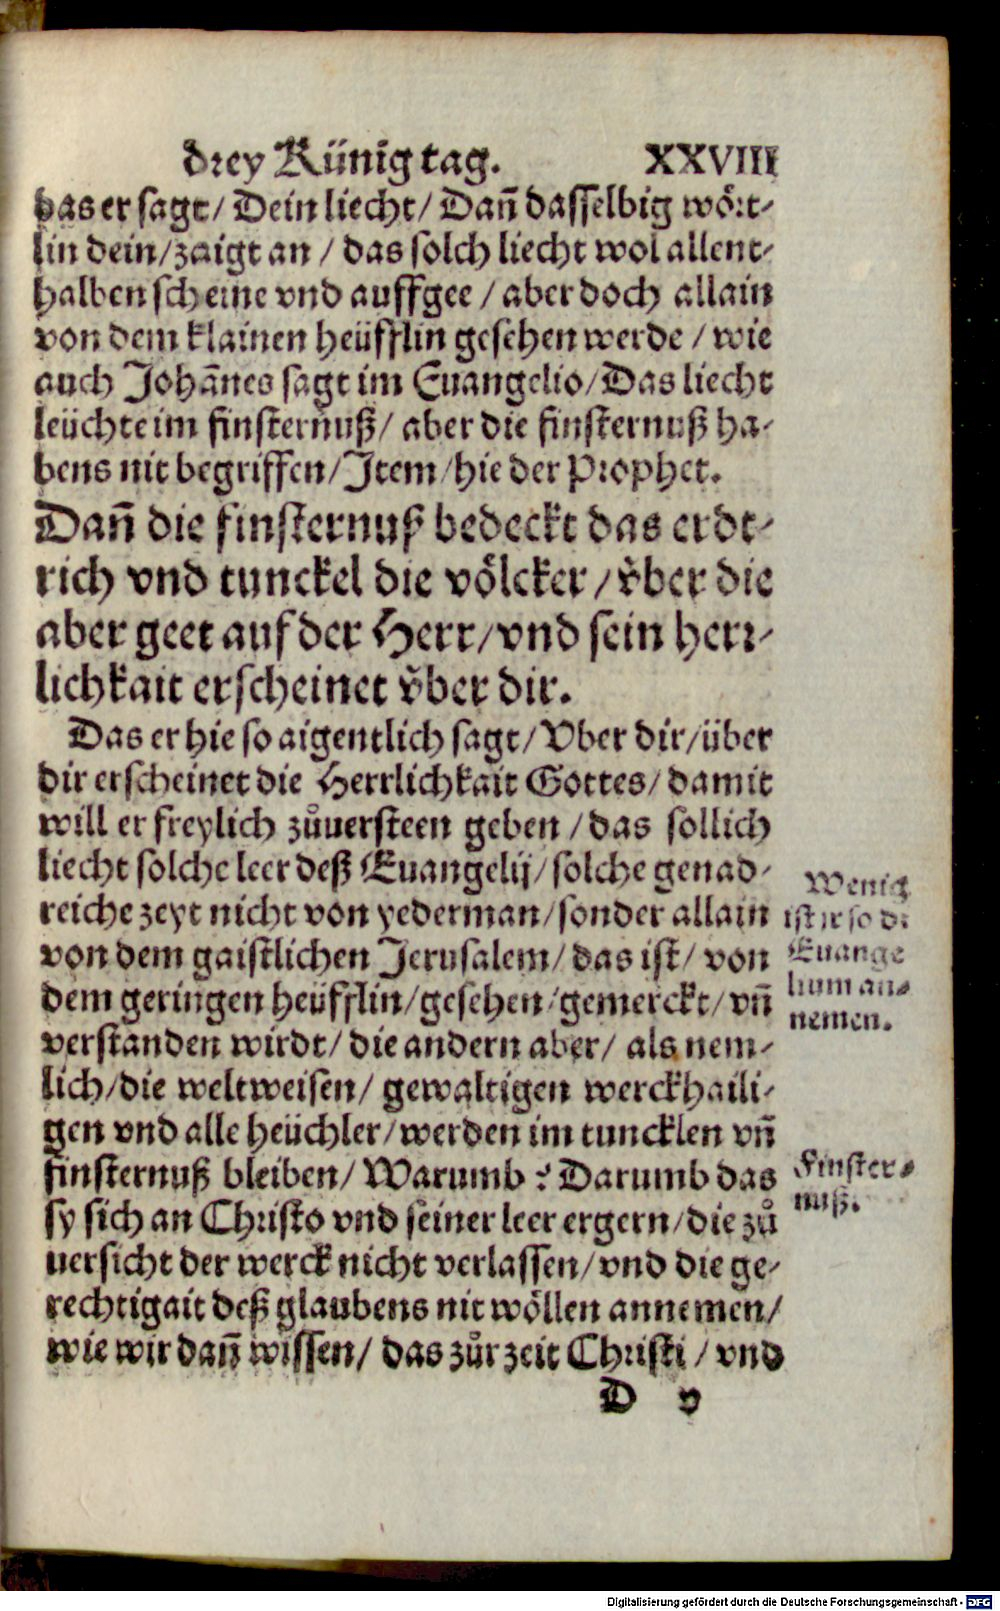 drey Künig tag. XXVIII
das er sagt/ Dein liecht/ Dañ dasselbig wört-
lin dein/zaigt an / das solch liecht wol allent-
halben scheine vnd auffgee / aber doch allain
von dem klainen heüfflin gesehen werde / wie
auch Johãnes sagt im Euangelio/ Das liecht
leüchte im finsternuß/ aber die finsternuß ha-
bens nit begriffen/ Item/hie der Prophet.
Dañ die finsternuß bedeckt das erdt-
rich vnd tunckel die völcker / vͤber die
aber geet auf der Herr/vnd sein herr-
lichkait erscheinet vͤber dir.
Das er hie so aigentlich sagt/ Vber dir/über
dir erscheinet die Herrlichkait Gottes/ damit
will er freylich zůuersteen geben / das sollich
liecht solche leer deß Euangelij/ solche genad-
reiche zeyt nicht von yederman/sonder allain
von dem gaistlichen Jerusalem/ das ist/ von
dem geringen heüfflin/gesehen/gemerckt/ vñ
verstanden wirdt/ die andern aber/ als nem-
lich/die weltweisen/ gewaltigen werckhaili-
gen vnd alle heüchler/werden im tuncklen vñ
finsternuß bleiben/ Warumb? Darumb das
sy sich an Christo vnd seiner leer ergern/die zů
uersicht der werck nicht verlassen/vnd die ge-
rechtigait deß glaubens nit wöllen annemen/
wie wir dañ wissen/ das zůr zeit Christi / vnd
D v
Wenig
ist ir so dz
Euange
lium an-
nemen.
Finster-
nuß.
Digitalisierung gefördert durch die Deutsche Forschungsgemeinschaft - DFG